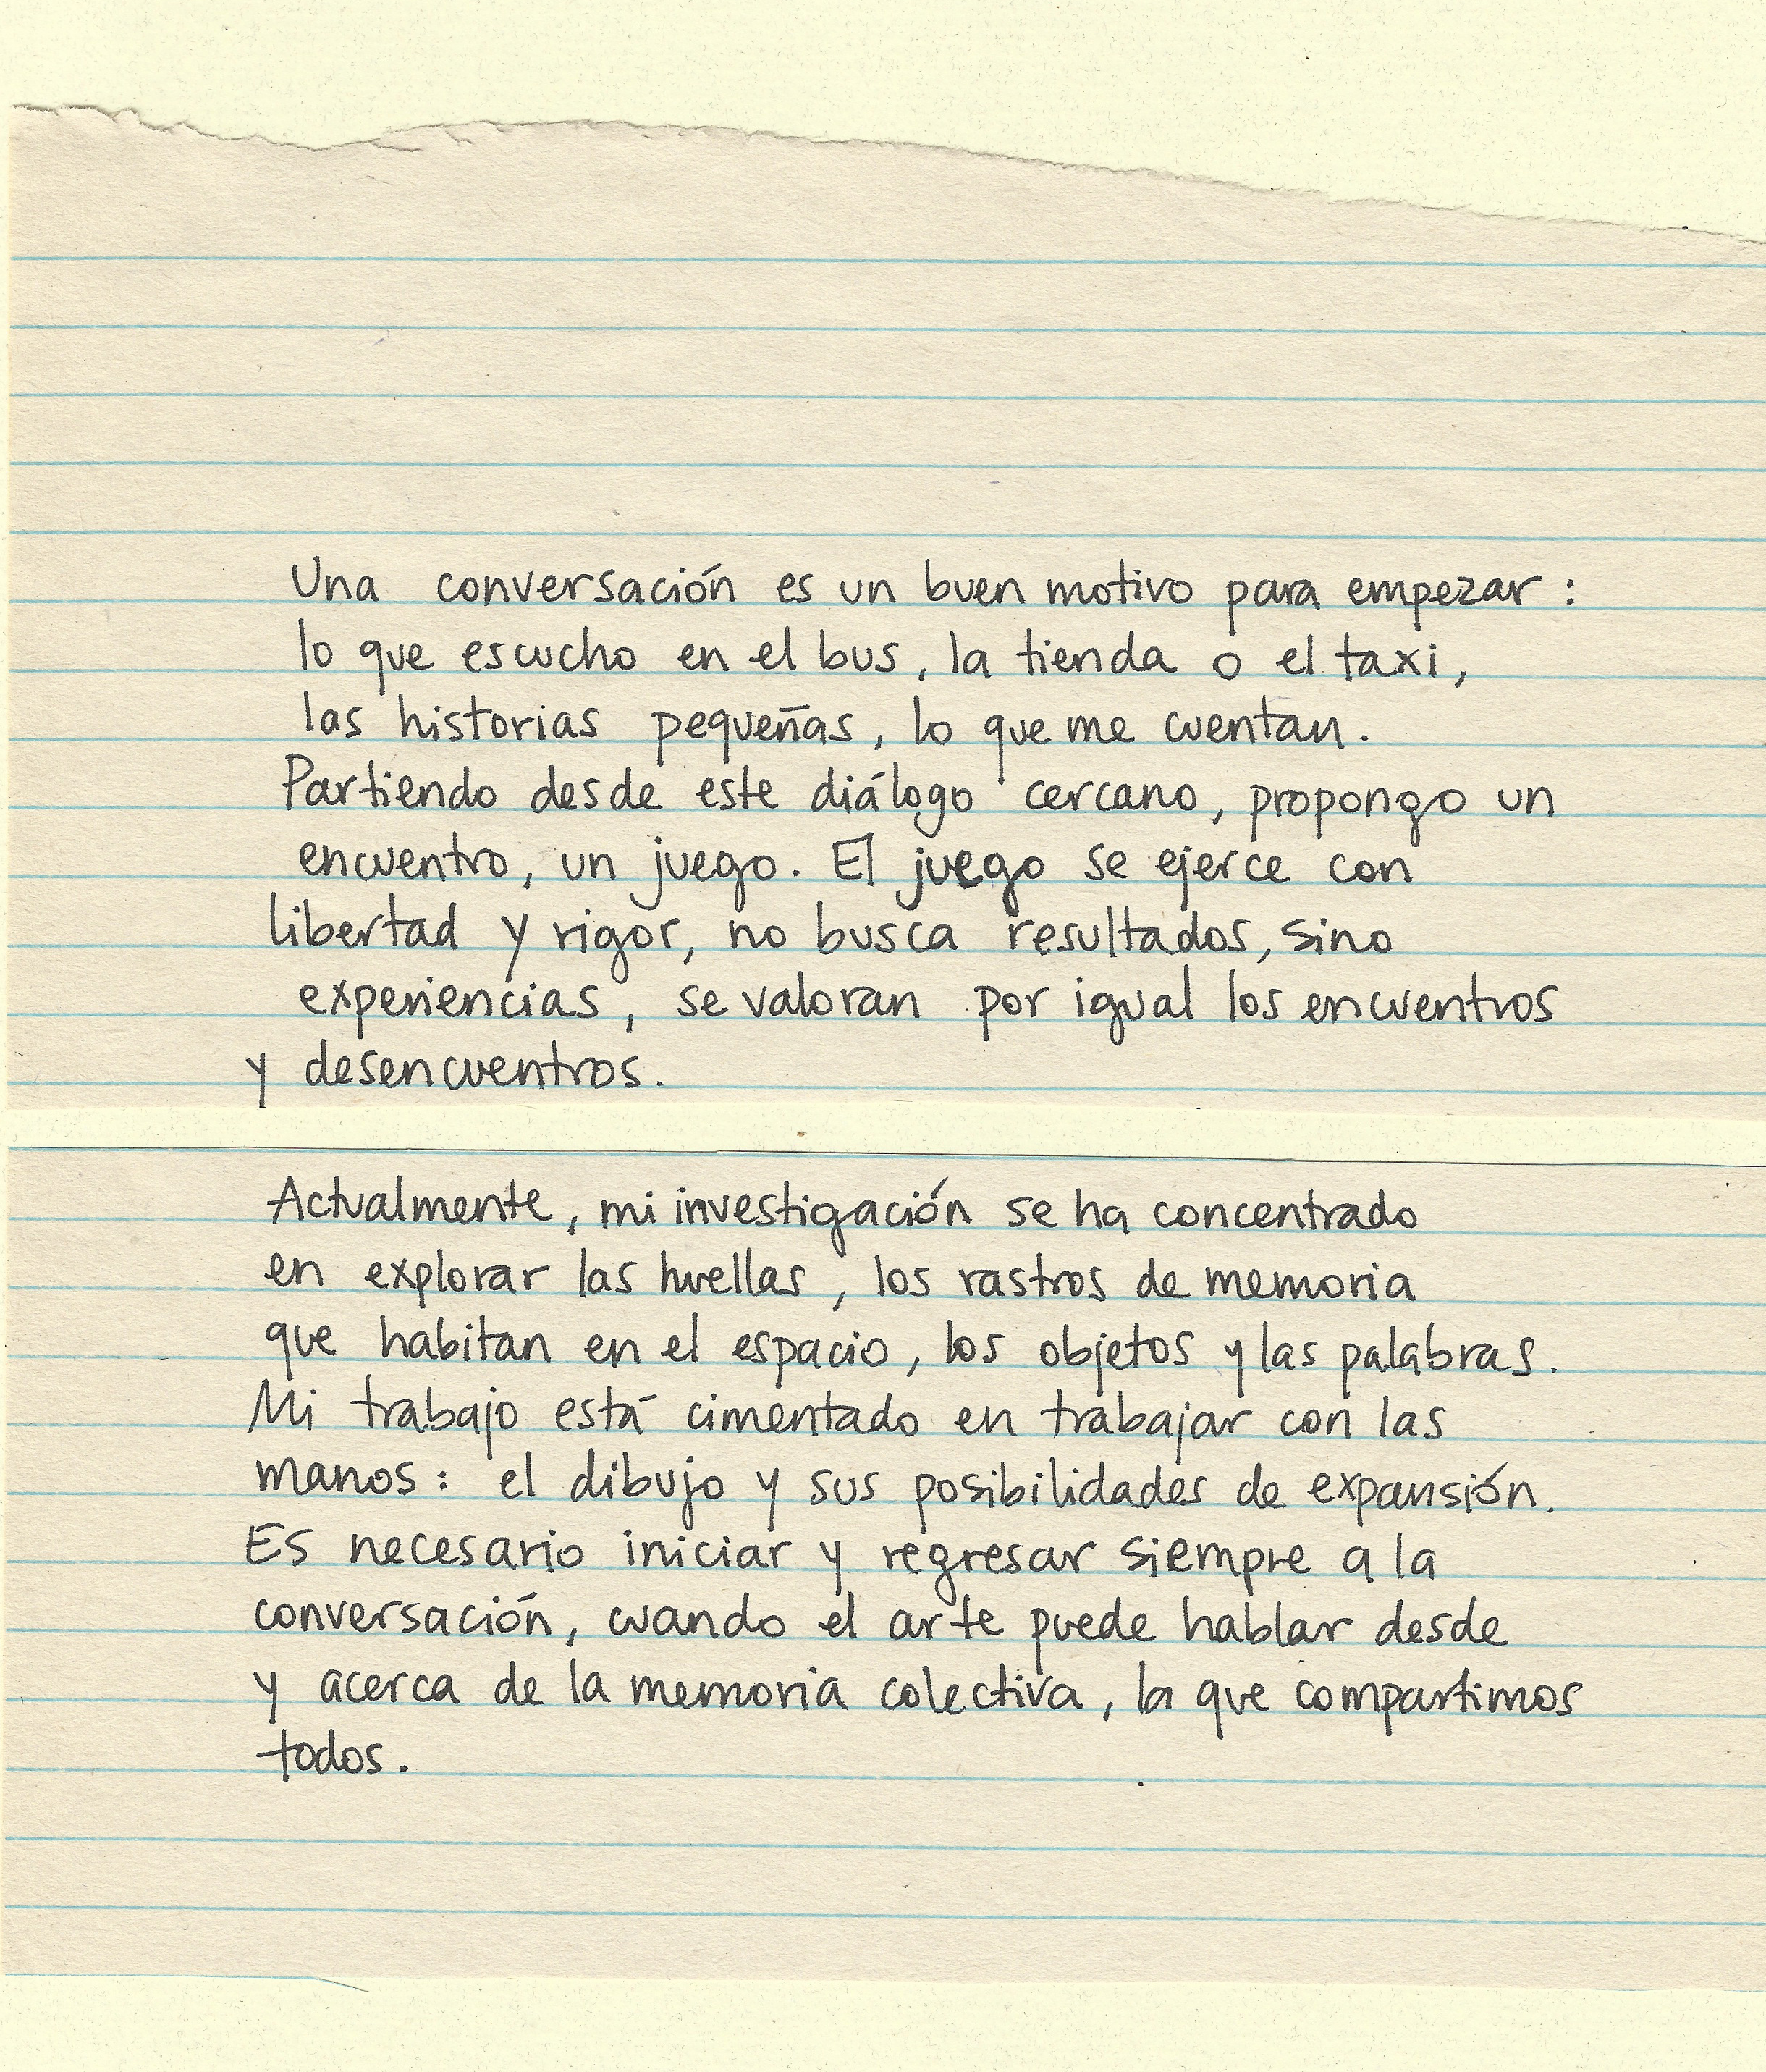 Una conversación es un buen motivo para empezar :
lo que escucho en el bus, la tienda o el taxi,
las historias pequeñas, lo que me cuentan.
Partiendo desde este diálogo cercano, propongo un
encuentro, un juego. El juego se ejerce con
libertad y rigor, no busca resultados, sino
experiencias, se valoran por igual los encuentros
y desencuentros.
Actualmente, mi investigación se ha concentrado
en explorar las huellas, los rastros de memoria
que habitan en el espacio, los objetos y las palabras.
Mi trabajo está cimentado en trabajar con las
manos: el dibujo y sus posibilidades de expansión.
Es necesario iniciar y regresar siempre a la
conversación, cuando el arte puede hablar desde
y acerca de la memoria colectiva, la que compartimos
todos.